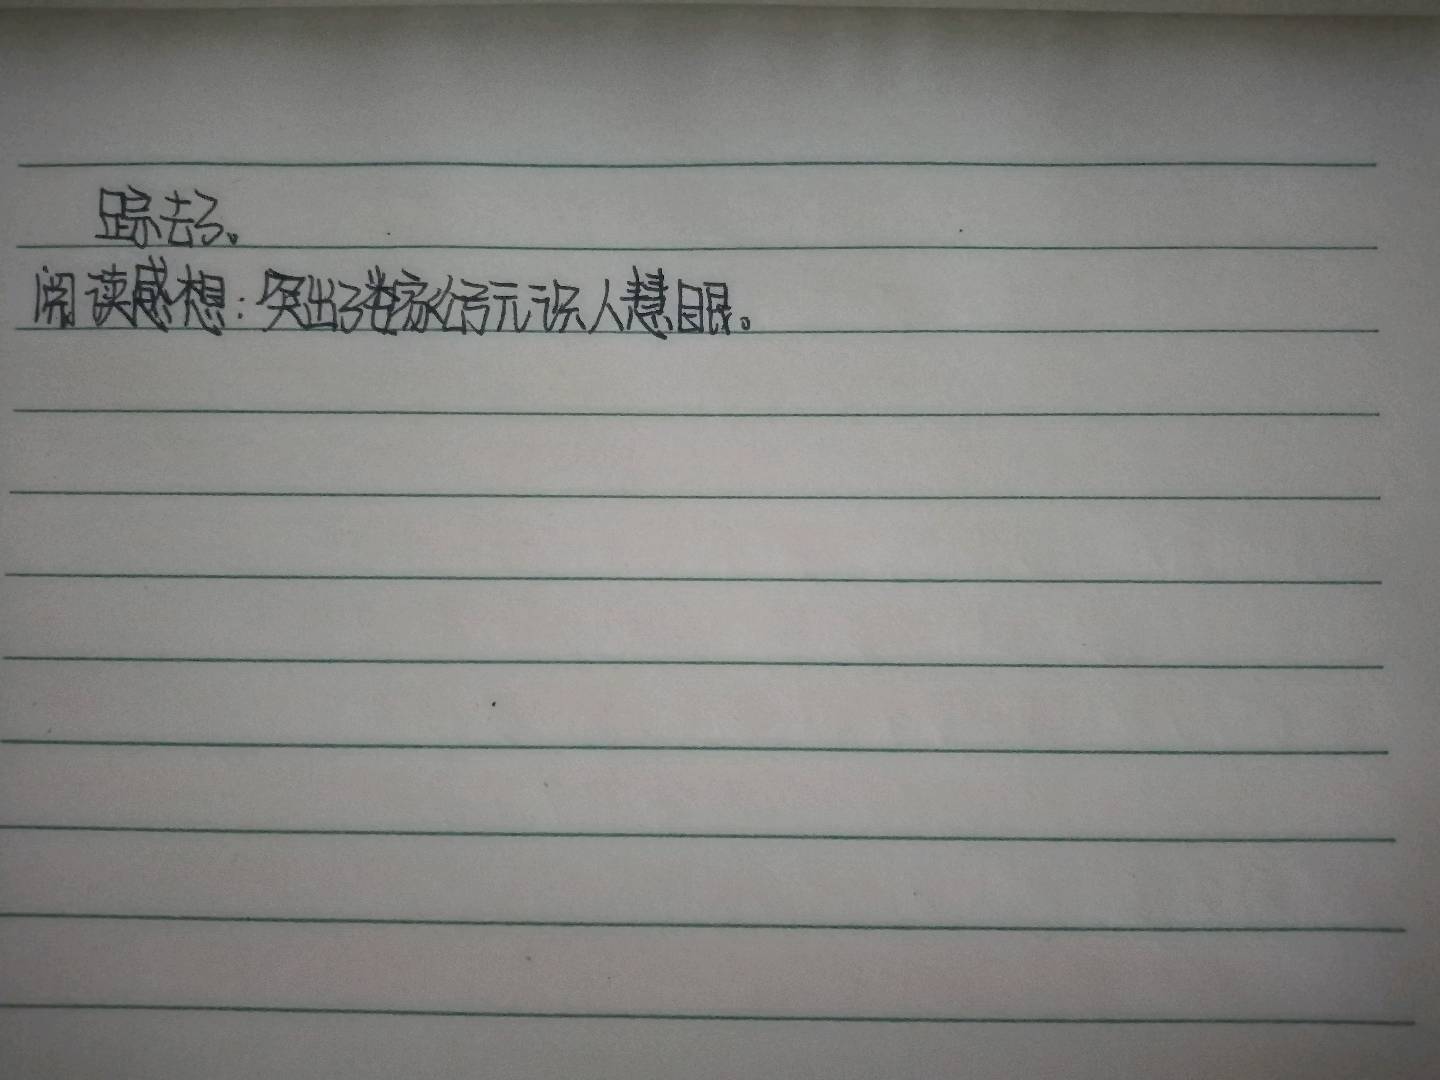 踪去了。
阅读感想：突出了娄家公子无识人慧眼。